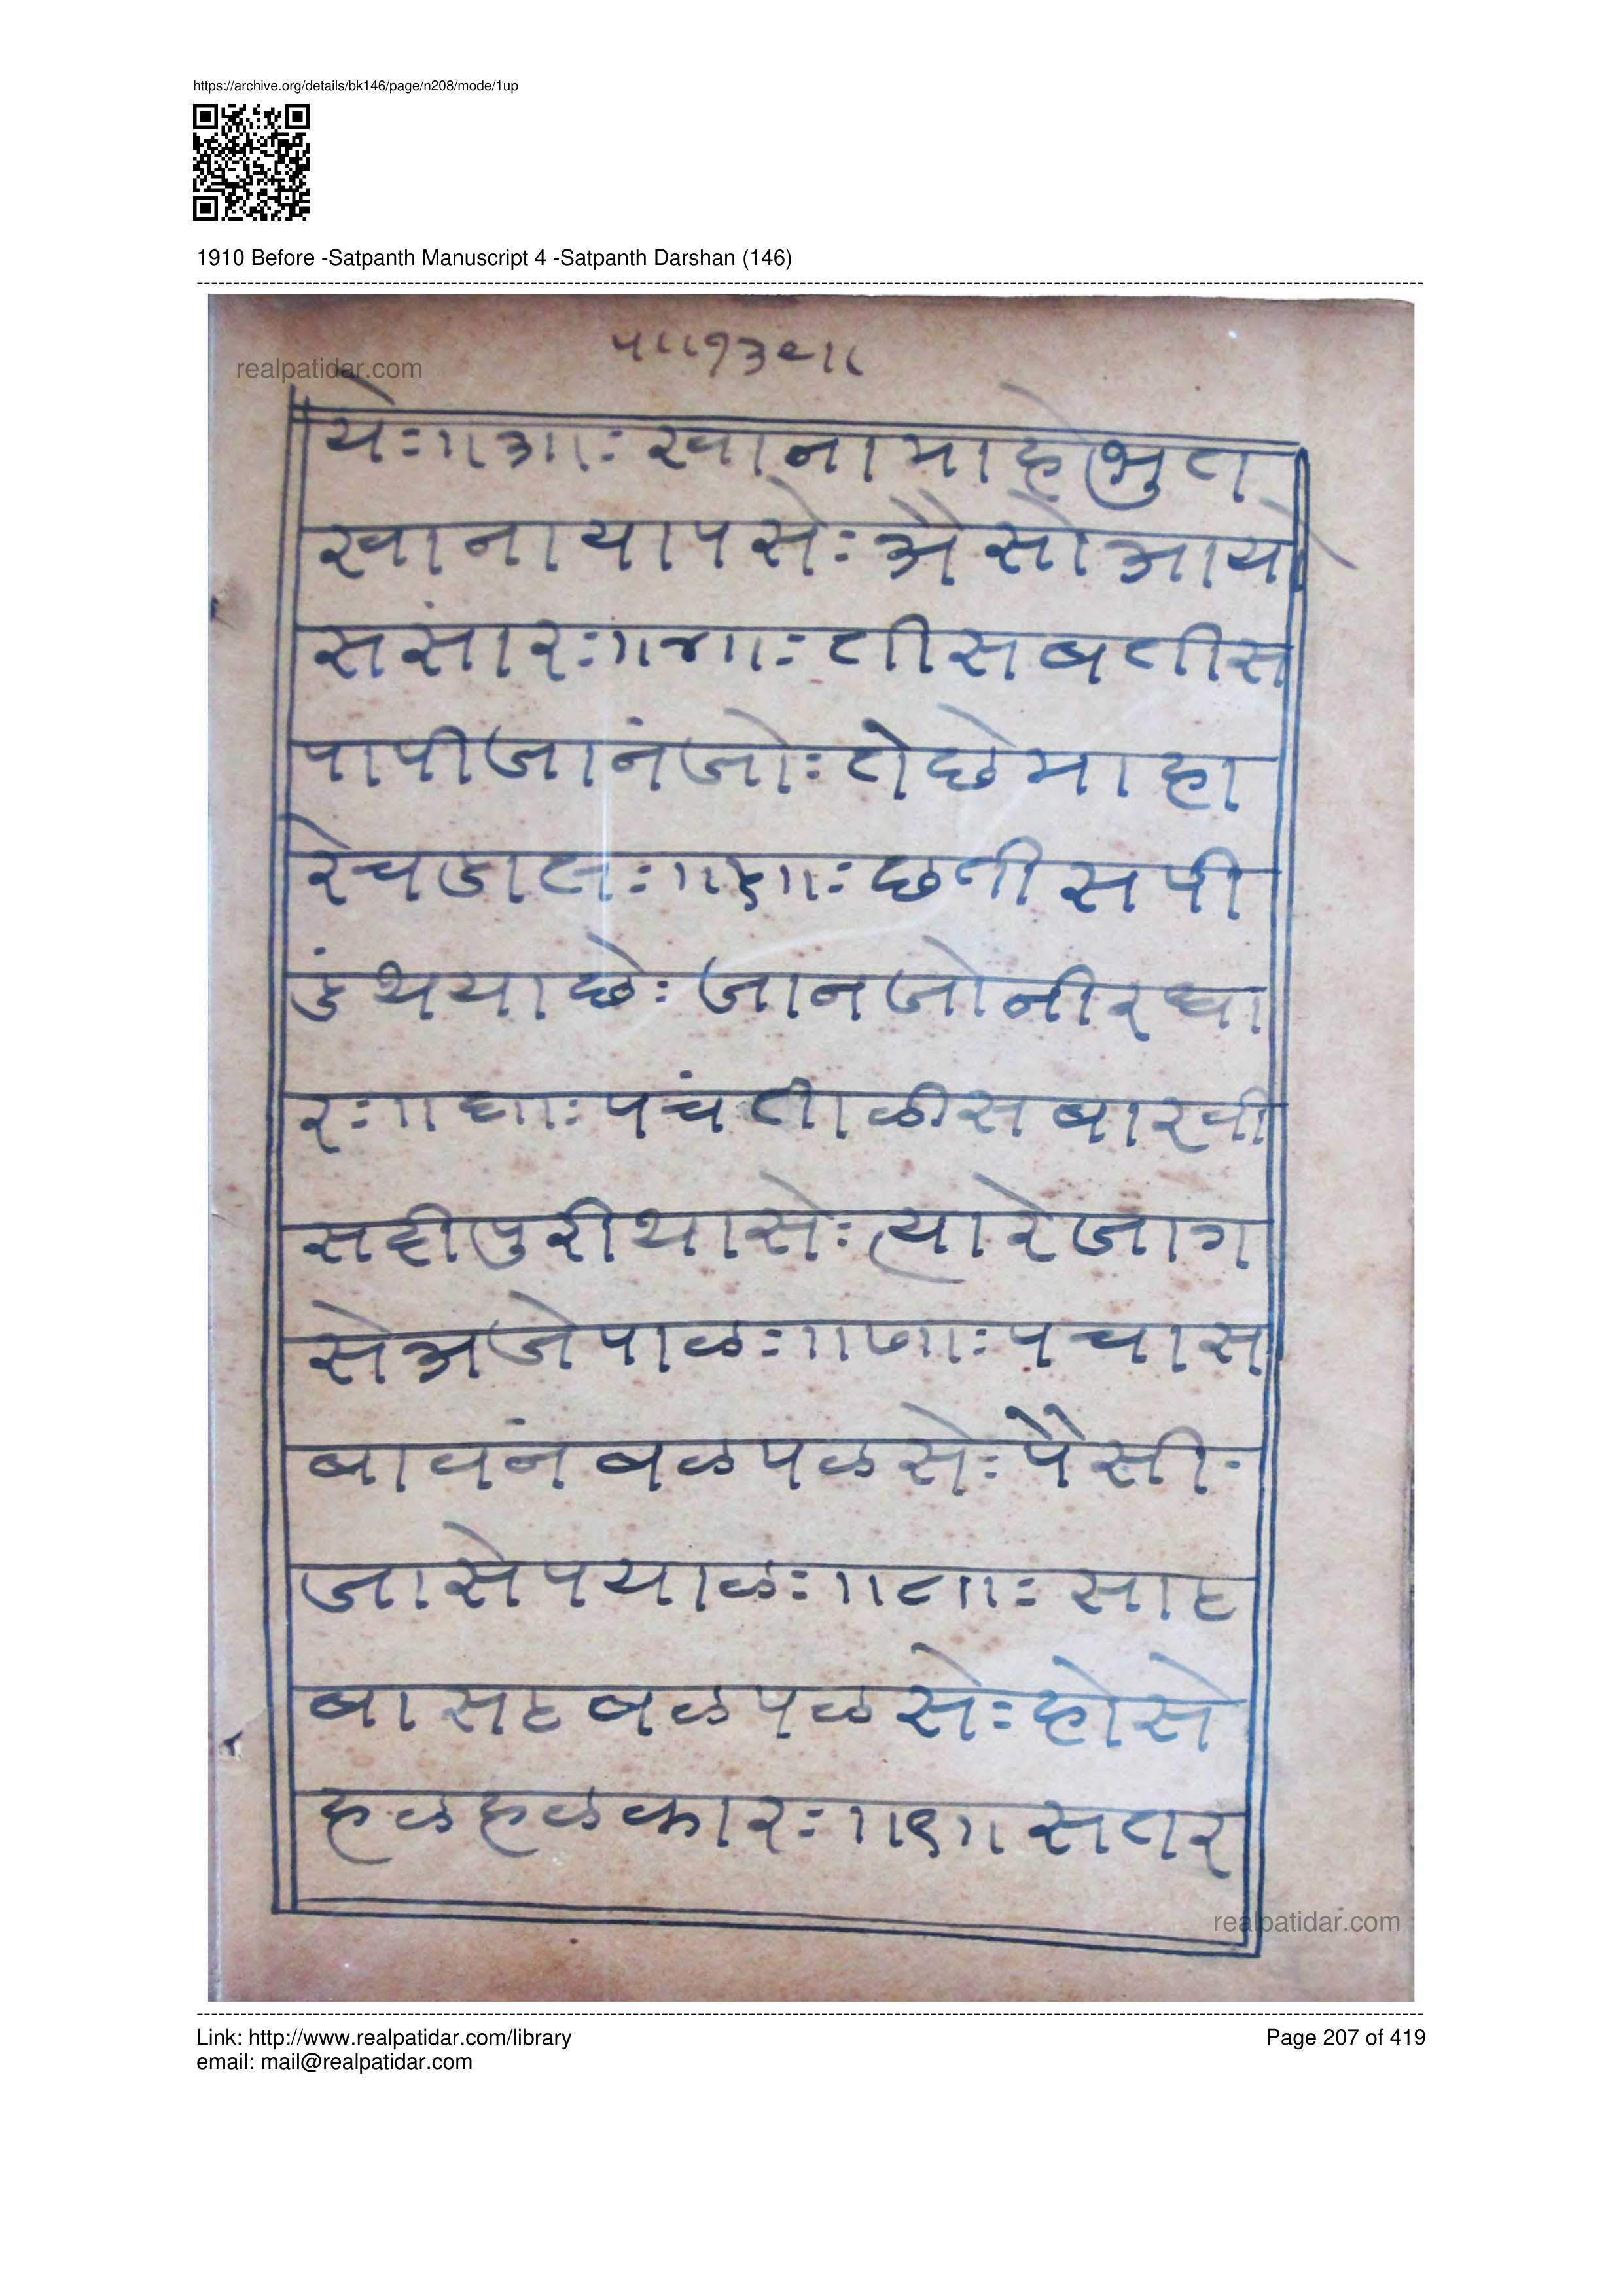 https://archive.org/details/bk146/page/n208/mode/1up
1910 Before -Satpanth Manuscript 4 -Satpanth Darshan (146)
realpatidar.com
प॥१३९॥
ये:॥३॥: खाना माहे भुत
खाना यापसे: अैसो आयो
ससंार:॥४॥: तीस बतीस
पापी जानंजो: तोछे माहा
रेचडाल:॥५॥: छतीस पी
डंथयाछे: जानजो नीरधा
र:॥६॥: पचंताळीस बारखी
सहीपुरी थासे: त्यारे जाग
से अजेपाळ:॥७॥: पचास
बावनं बळपळसे: पैसी-
जासे पयाळ:॥८॥: साठ
बासठ बळपळसे: होसे
हळहळकार:॥९॥ सतर
realpatidar.com
Link: http://www.realpatidar.com/library
Page 207 of 419
email: mail@realpatidar.com